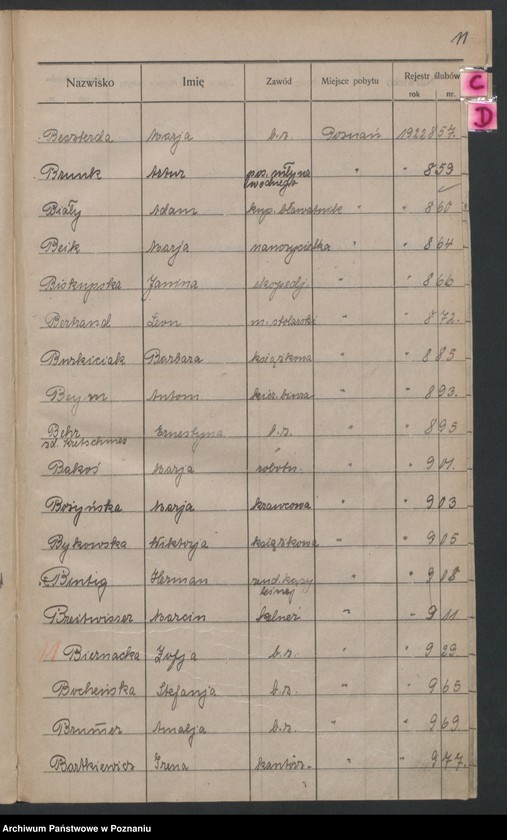 11
Nazwisko Imię Zawód Miejsce pobytu Rejestr ślubów
rok nr.
C
D
Beszterda Marja b.z. Poznań 1922 857.
Brunk Artur pos. młyna " " 859
wodnego
Biały Adam kup. bławatnik " " 860
Beik Marja nauczycielka " " 864
Biskupska Janina ekspedj. " " 866
Bertrand Leon m. stolarski " " 872.
Burkiciak Barbara książkowa " " 885
Beym Antoni kier. biura " " 893.
Behr Ernestyna b.z. " " 895
zd. Kretschmer
Bakoś Marja robotn. " " 901.
Bożyńska Marja krawcowa " " 903
Bykowska Wiktorja książkowa " " 905
Bintig Herman " " 908
leśnej
Breitwisser Marcin kelner " " 911
Biernacka Zofja b.z. " " 929
Bocheńska Stefanja b.z. " " 965
Brummer Amalja b.z. " " 969
Bartkiewicz Irena kantor. " " 977.
Archiwum Państwowe w Poznaniu